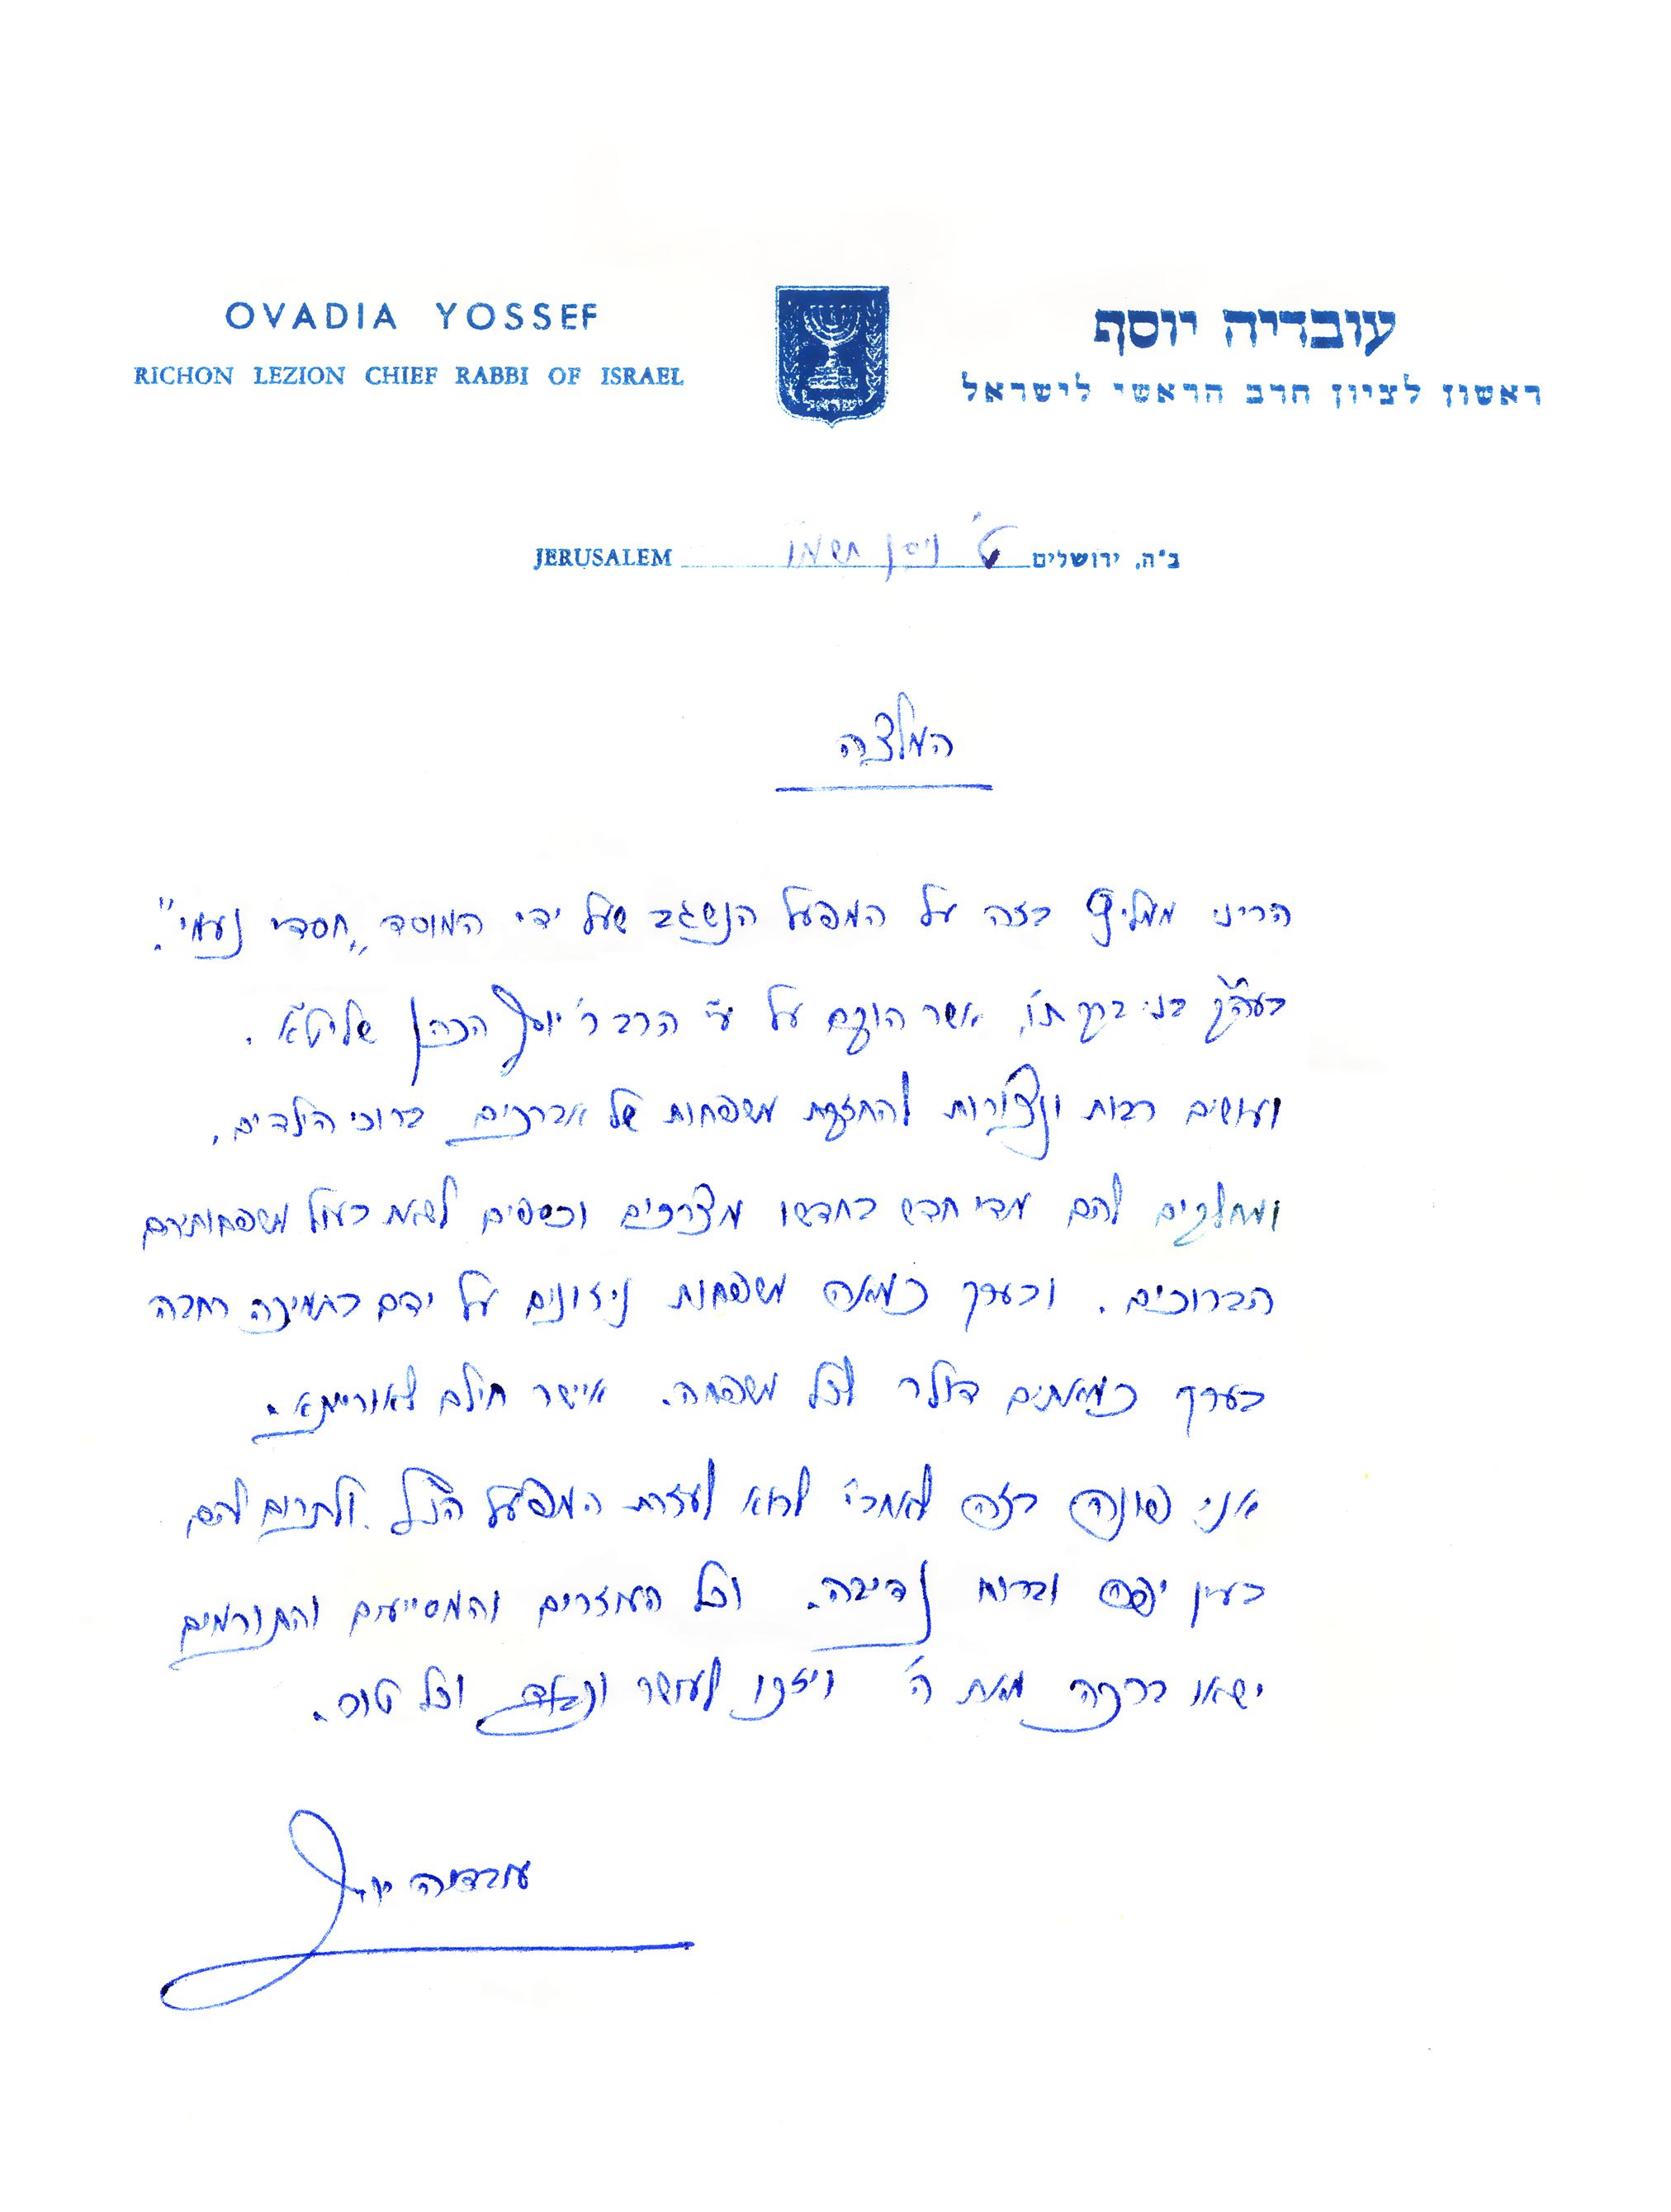 OVADIA YOSSEF
RICHON LEZION CHIEF RABBI OF ISRAEL
ישראל
עובדיה יוסף
ראשון לציון הרב הראשי לישראל
ב"ה, ירושלים ט' ניסן תשמ"ו JERUSALEM
המלצה
הריני ממליץ בזה על המפעל הנשגב שעל ידי המוסד "חסדי נעמי".
בעה"ק בני ברק ת"ו, אשר הוקם על ע"י הרב ר' יוסף הכהן שליט"א.
ועושים רבות ונצורות להחזקת משפחות של אברכים ברוכי הילדים,
ומחלקים להם מדי חדש בחדשו מצרכים וכספים לשאת בעול משפחותיהם
הברוכים. ובערך כמאה משפחות ניזונים על ידם בתמיכה רחבה
בערך כמאתים דולר לכל משפחה. אישר חילם לאורייתא.
אני פונה בזה לאחב"י לבוא לעזרת המפעל הנ"ל ולתרום להם
בעין יפה וברוח נדיבה. וכל העוזרים והמסייעים והתורמים
ישאו ברכה מאת ה' ויזכו לעושר וכבוד וכל טוב.
עובדיה יוסף